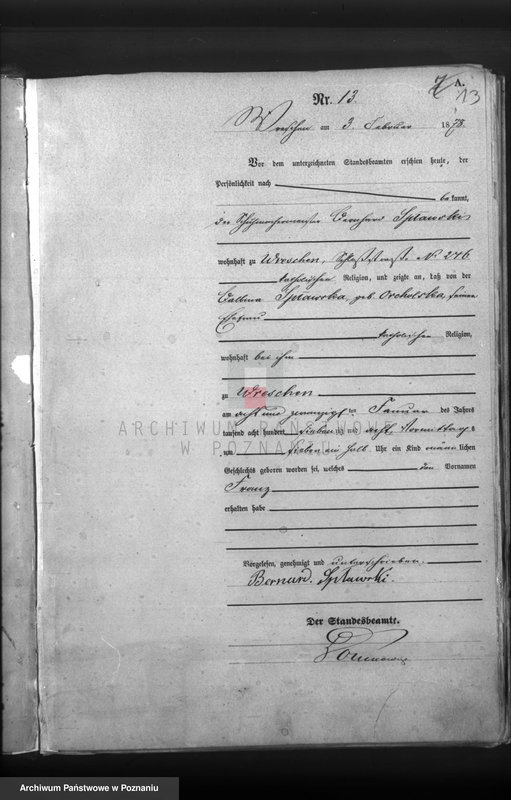 A.
13
Nr. 13.
Wreschen am 3. Februar 1878.
Vor dem unterzeichneten Standesbeamten erschien heute, der
Persönlichkeit nach
bekannt,
der Schuhmachermeister Bernhard Splawski
wohnhaft zu Wreschen, Schloßstraße No 246
katholischer Religion, und zeigte an, daß von der
Balbina Splawska, geb. Orcholska, seiner
Ehefrau
katholischer Religion,
wohnhaft bei ihm
zu Wreschen
am acht und zwanzigsten Januar des Jahres
tausend acht hundert siebenzig und acht Vormittags
um sieben ein halb Uhr ein Kind männlichen
Geschlechts geboren worden sei, welches den Vornamen
Franz
erhalten habe
Vorgelesen, genehmigt und unterschrieben.
Bernard. Spławski.
Der Standesbeamte.
ARCHIWUM PAŃSTWOWE
W POZNANIU
Archiwum Państwowe w Poznaniu